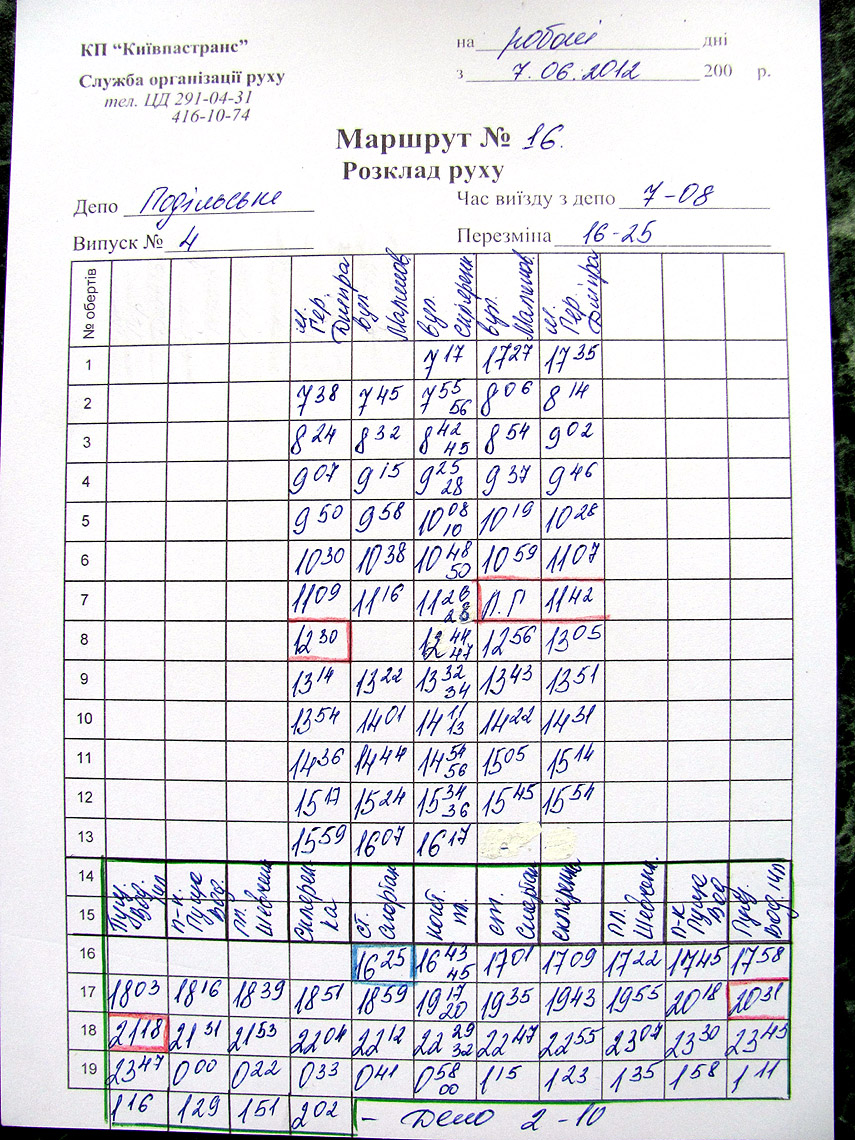 КП “Київпастранс”
Служба організації руху
тел. ЦД 291-04-31
416-10-74
на робочі дні
з 7.06.2012 200 р.
Маршрут № 16.
Розклад руху
Депо Подільське
Час виїзду з депо 7-08
Випуск № 4
Перезміна 16-25
№ обертів м. Гер. Дніпра вул. вул. вул. м. Гер. Дніпра
1 7 17 17 27 17 35
2 7 38 7 45 7 55 56 8 06 8 14
3 8 24 8 32 8 42 45 8 54 9 02
4 9 07 9 15 9 25 28 9 37 9 46
5 9 50 9 58 10 08 10 10 19 10 28
6 10 30 10 38 10 48 50 10 59 11 07
7 11 09 11 16 11 26 28 П.Г 11 42
8 12 30 12 44 47 12 56 13 05
9 13 14 13 22 13 32 34 13 43 13 51
10 13 54 14 01 14 11 13 14 22 14 31
11 14 36 14 44 14 54 56 15 05 15 14
12 15 17 15 24 15 34 36 15 45 15 54
13 15 59 16 07 16 17 -
14
15
16 16 25 16 43 45 17 01 17 09 17 22 17 45 17 58
17 18 03 18 16 18 39 18 51 18 59 19 17 20 19 35 19 43 19 55 20 18 20 31
18 21 18 21 31 21 53 22 04 22 12 22 29 32 22 47 22 55 23 07 23 30 23 43
19 23 47 0 00 0 22 0 33 0 41 0 58 00 1 15 1 23 1 35 1 58 1 11
1 16 1 29 1 51 2 02 - Депо 2-10